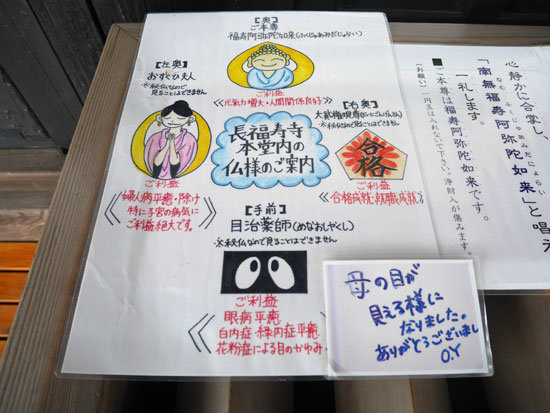 【奥】
ご本尊
福寿阿弥陀如来(ふくじゅあみだにょらい)
ご利益
《元気力増大・人間関係良好》
【左奥】
おずとひ夫人
※秘仏なので
見ることはできません
ご利益
婦人病平癒・除け
特に子宮の病気に
ご利益絶大です。
長福寿寺
本堂内の
仏様のご案内
【右奥】
※秘仏なので見ることはできません
合格
ご利益
《合格成就・就職成就》
【手前】
目治薬師(めなおしやくし)
※秘仏なので見ることはできません
ご利益
眼病平癒
白内症・緑内症平癒
花粉症による目のかゆみ
母の目が
見える様に
なりました。
ありがとうございまし
O.Y
心静かに合掌し
「南無福寿阿弥陀如来」と唱え
なむふくじゅあみだにょらい
一礼します。
ご本尊は福寿阿弥陀如来です。
(お願い)一円玉は入れないで下さい。浄財入が傷みます。